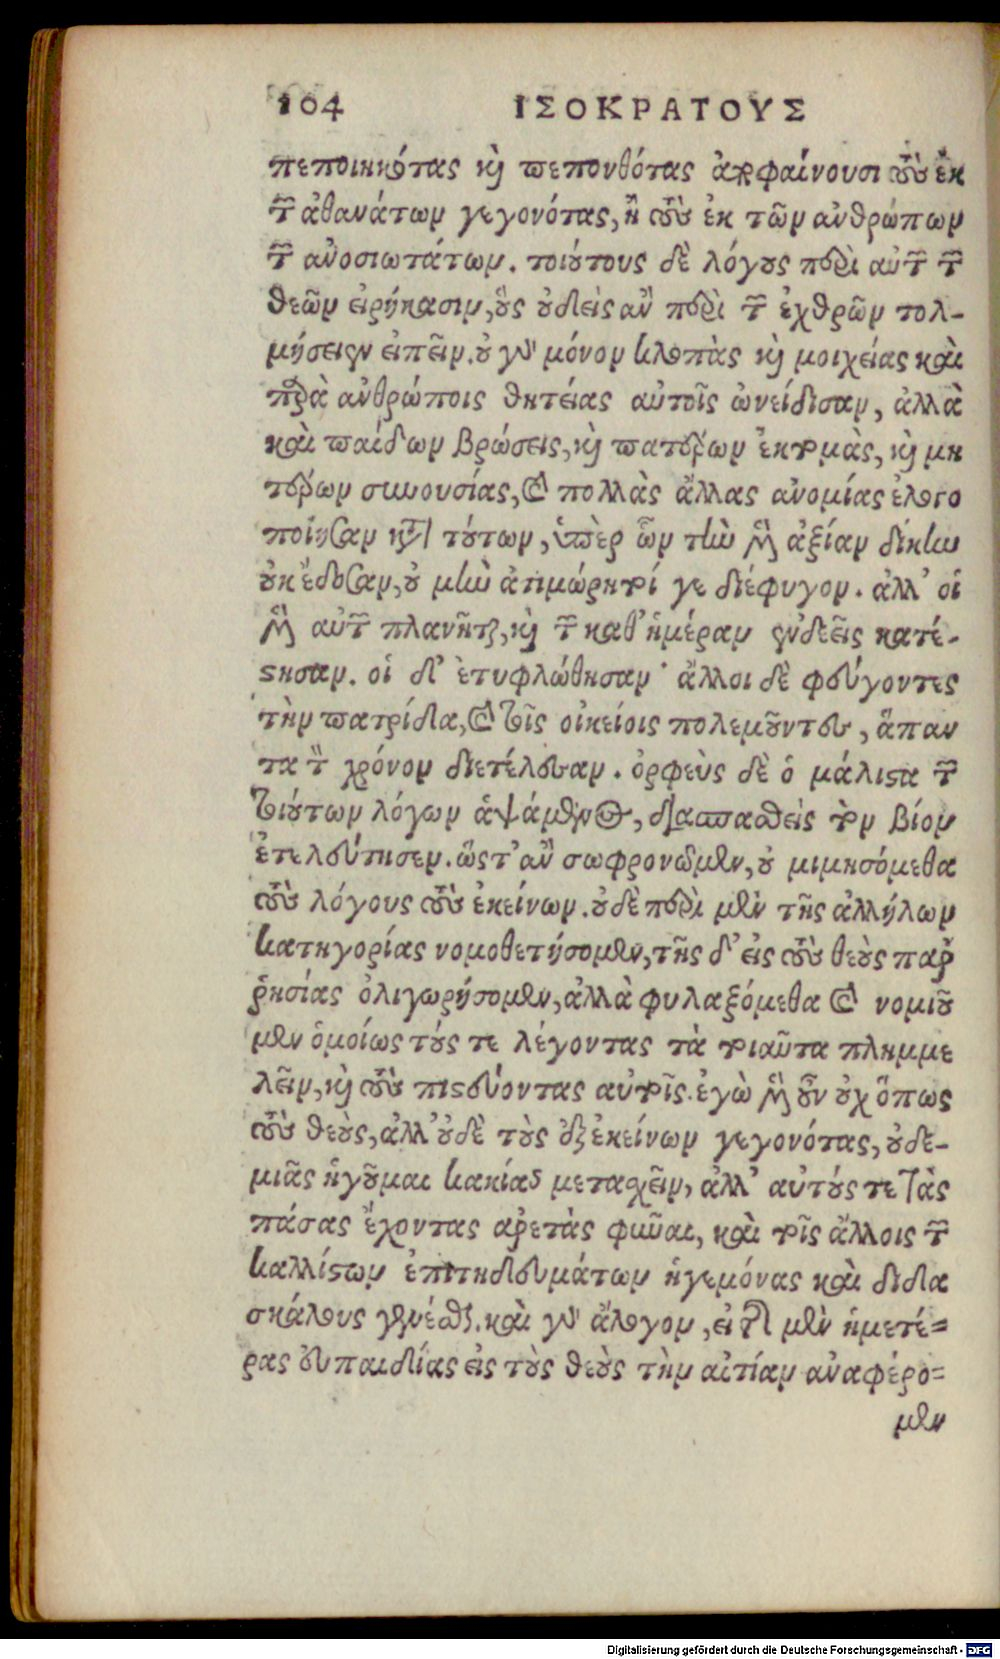 104 ΙΣΟΚΡΑΤΟΥΣ
πεποιηκότας καὶ πεπονθότας ἀποφαίνουσι τοὺς ἐκ
τῶν ἀθανάτων γεγονότας, ἢ τοὺς ἐκ τῶν ἀνθρώπων
τῶν ἀνοσιωτάτων. τοιούτους δὲ λόγους περὶ αὐτῶν τῶν
θεῶν εἰρήκασιν, οὓς οὐδεὶς ἂν περὶ τῶν ἐχθρῶν τολ-
μήσειεν εἰπεῖν. οὐ γὰρ μόνον κλοπὰς καὶ μοιχείας καὶ
παρὰ ἀνθρώποις θητείας αὐτοῖς ὠνείδισαν, ἀλλὰ
καὶ παίδων βρώσεις, καὶ πατέρων ἐκτομὰς, καὶ μη
τέρων συνουσίας, καὶ πολλὰς ἄλλας ἀνομίας ἐλογο
ποίησαν κατὰ τούτων, ὑπὲρ ὧν τὴν μὲν ἀξίαν δίκην
οὐκ ἔδοσαν, οὐ μὴν ἀτιμώρητοί γε διέφυγον. ἀλλ' οἱ
μὲν αὐτῶν πλανῆται, καὶ τῶν καθ' ἡμέραν ἐνδεεῖς κατέ-
στησαν. οἱ δ' ἐτυφλώθησαν· ἄλλοι δὲ φεύγοντες
τὴν πατρίδα, καὶ τοῖς οἰκείοις πολεμοῦντες, ἅπαν
τα τὸν χρόνον διετέλεσαν. ὀρφεὺς δὲ ὁ μάλιστα τῶν
τοιούτων λόγων ἁψάμενος, διασπασθεὶς τὸν βίον
ἐτελεύτησεν. ὥστ' ἂν σωφρονῶμεν, οὐ μιμησόμεθα
τοὺς λόγους τοὺς ἐκείνων. οὐδὲ περὶ μὲν τῆς ἀλλήλων
κατηγορίας νομοθετήσομεν, τῆς δ' εἰς τοὺς θεοὺς παῤ
ῥησίας ὀλιγωρήσομεν, ἀλλὰ φυλαξόμεθα καὶ νομιοῦ
μεν ὁμοίως τούς τε λέγοντας τὰ τοιαῦτα πλημμε
λεῖν, καὶ τοὺς πιστεύοντας αὐτοῖς. ἐγὼ μὲν οὖν οὐχ ὅπως
τοὺς θεοὺς, ἀλλ' οὐδὲ τοὺς ἐξ ἐκείνων γεγονότας, οὐδε-
μιᾶς ἡγοῦμαι κακίας μετασχεῖν, ἀλλ' αὐτούς τε τὰς
πάσας ἔχοντας ἀρετὰς φῦναι, καὶ τοῖς ἄλλοις τῶν
καλλίστων ἐπιτηδευμάτων ἡγεμόνας καὶ διδα
σκάλους γεγενῆσθαι. καὶ γὰρ ἄλογον, εἰ τῆς μὲν ἡμετέ=
ρας εὐπαιδίας εἰς τοὺς θεοὺς τὴν αἰτίαν ἀναφέρο=
μεν
Digitalisierung gefördert durch die Deutsche Forschungsgemeinschaft - DFG